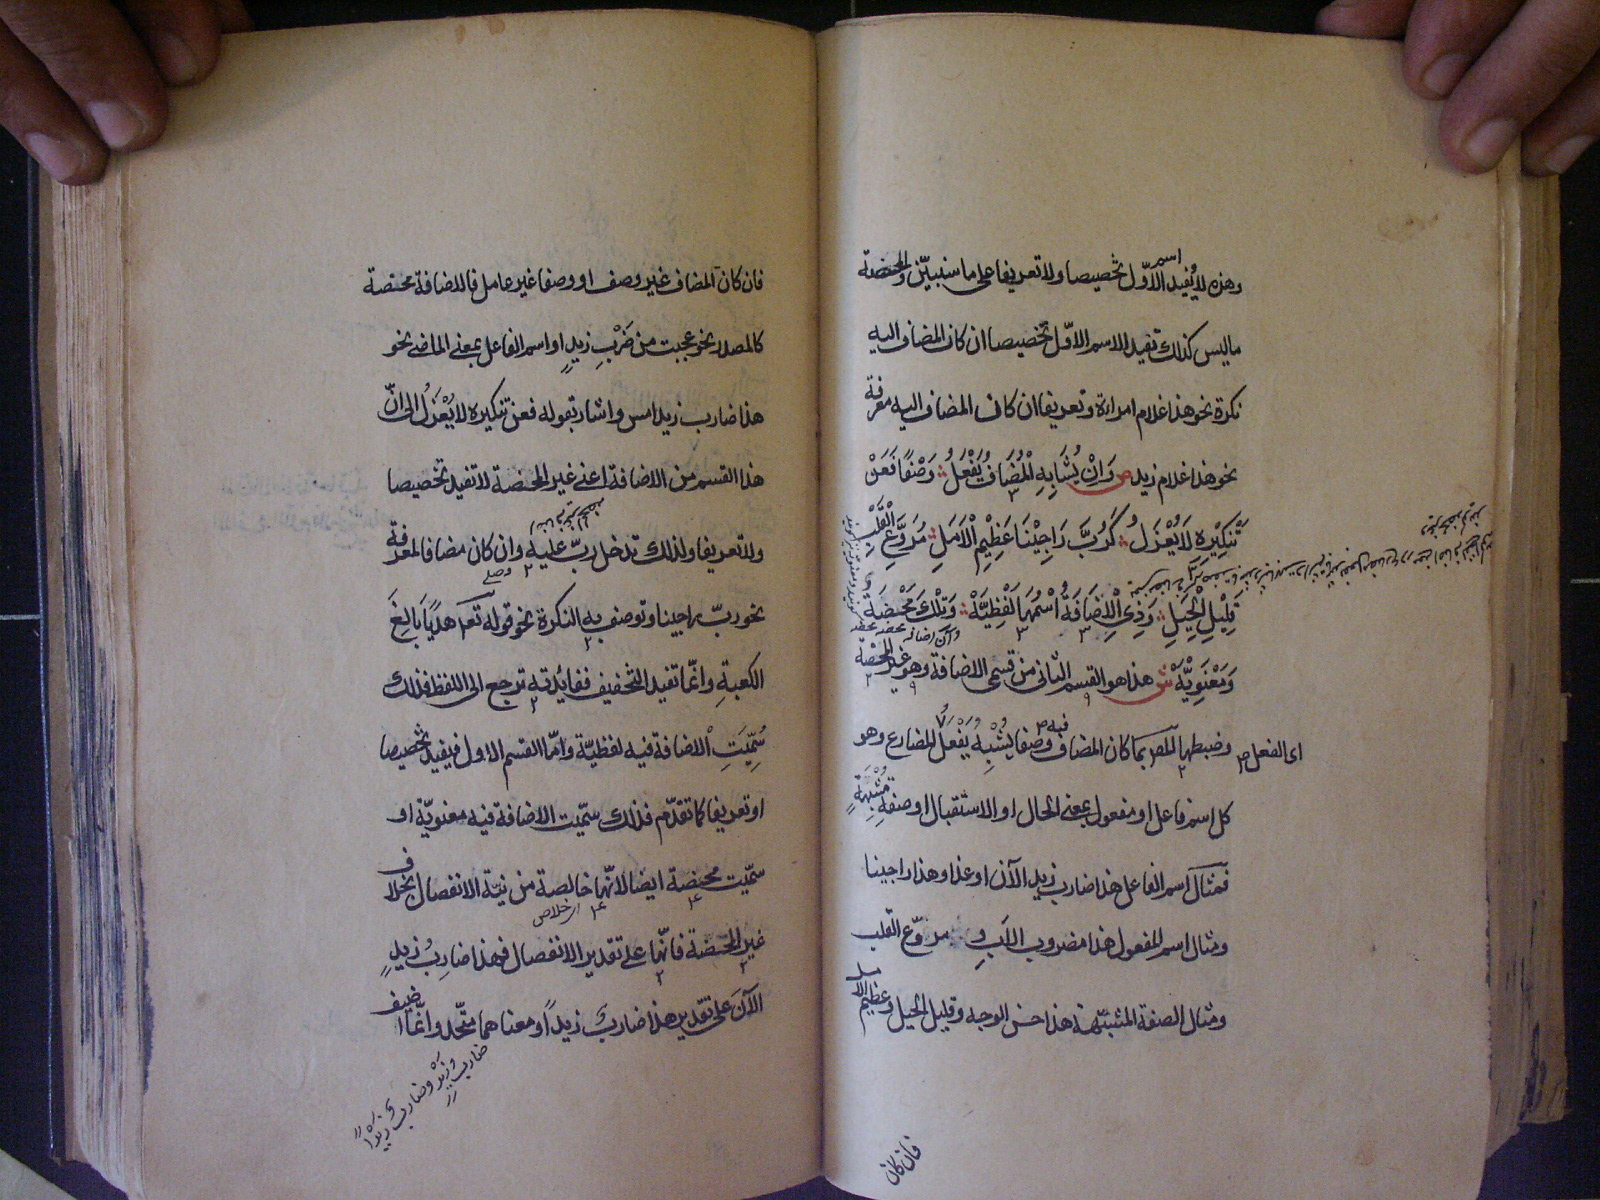 وهذه لا يُفيد الاوّل تخصيصا ولا تعريفا على ما سنبيّن والمحضة
اسم
ما ليس كذلك تفيد الاسم الاوّل تخصيصا ان كان المضاف اليه
نكرة نحو هذا غلام امراءة وتعريفا ان كان المضاف اليه معرفة
نحو هذا غلام زيد ص وَاِنْ يُشَابِهِ الْمُضَافُ يَفْعَلُ وَصْفًا فَعَنْ
تَنْكِيْرِهِ لَا يُعْزَلُ كَرُبَّ رَاجِيْنَا عَظِيْمِ الْاَمَلِ مُرَوَّعِ الْقَلْبِ
قَلِيْلِ الْحِيَلِ وَذِي الْاِضَافَةُ اسْمُهَا لَفْظِيَّةْ وَتِلْكَ مَحْضَةٌ
وَمَعْنَوِيَّةْ ش هذا هو القسم الثانى من قسمى الاضافة وهو غير المحضة
وضبطها المص بما كان المضاف فيه وصفا يُشْبِهُ يَفْعَلُ المضارع وهو
اى الفعل
كل اسم فاعل او مفعول بمعنى الحال او الاستقبال او صفةٍ مُشْبِهَةٍ
فمثال اسم الفاعل هذا ضارب زيد الآن او غدا وهذا راجينا
ومثال اسم المفعول هذا مضروب الاب و مروّع القلب
ومثال الصفة المشبّهة هذا حسن الوجه وقليل الحيل وعظيم الامل
فان كان
فان كان المضاف غير وصف او وصفا غير عامل فالاضافة محضة
كالمصدر نحو عجبت من ضَرْبِ زيدٍ او اسم الفاعل بمعنى الماضى نحو
هذا ضارب زيد امس واشار بقوله فعن تنكيره لا يُعْزَلُ الى انّ
هذا القسم من الاضافة اعنى غير المحضة لا تفيد تخصيصا
ولا تعريفا ولذلك تدخل ربّ عليه وان كان مضافا لمعرفة
نحو ربّ راجينا وتوصف به النكرة نحو قوله تعم هديًا بَالِغَ
الكعبةِ وانّما تفيد التخفيف ففائدته ترجع الى اللفظ فذلك
سُمِّيَتِ الاضافة فيه لفظيّة وامّا القسم الاول فيفيد تخصيصا
او تعريفا كما تقدّم فذلك سمّيت الاضافة فيه معنويّة او
سمّيت محضة ايضا لانّها خالصة من نيّة الانفصال بخلاف
غير المحضة فانّها على تقدير الانفصال فهذا ضارِبُ زيدٍ
الآنَ على تقدير هذا ضاربٌ زيدًا ومعناهما متّحد وانّما اضيف
ضارب زيد وضارب زيدا